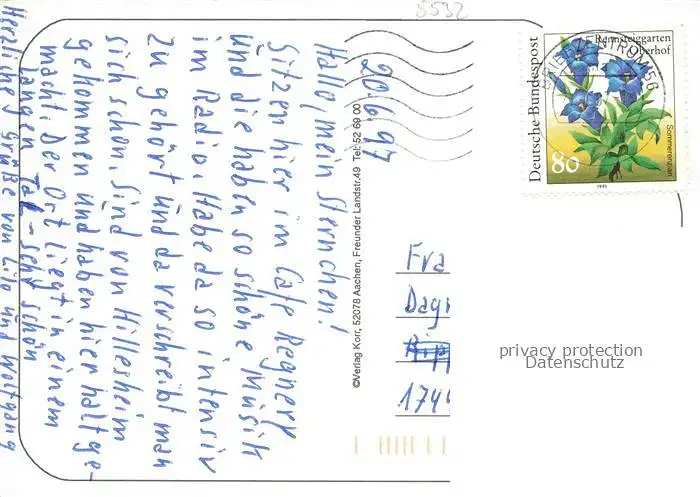 5532
20.6.97
Hallo, mein Sternchen!
Sitzen hier im Cafe Regnery
und die haben so schöne Musik
im Radio. Habe da so intensiv
zu gehört und da verschreibt man
sich schon. Sind von Hillesheim
gekommen und haben hier halt ge-
macht. Der Ort liegt in einem
langen Tal - sehr schön
Herzliche Grüße von Lilo und Wolfgang
©Verlag Korr, 52078 Aachen, Freunder Landstr. 49 Tel: 52 69 00
Deutsche Bundespost
Rennsteiggarten
Oberhof
Sommerenzian
80
1991
BRIEFZENTRUM 56
Fra
Dag
174
privacy protection
Datenschutz